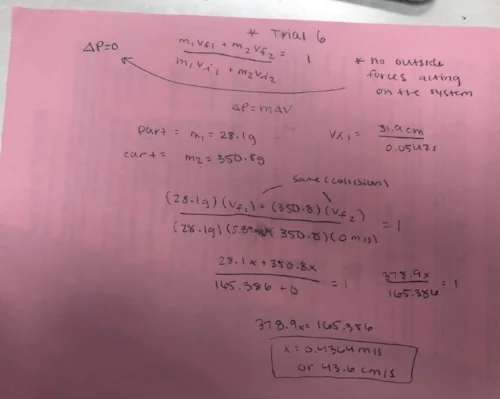 * Trial 6
ΔP=0
m₁vf₁ + m₂vf₂ / m₁vi₁ + m₂vi₂ = 1
* no outside
forces acting
on the system
ΔP = mΔV
m₁ = 28.1g
cart = m₂ = 350.8g
31.9cm / 0.0542s
same (collision)
(28.1g)(vf₁) + (350.8)(vf₂) / (28.1g) (350.8)(0 m/s) = 1
28.1x + 350.8x / 165.386 + 0 = 1
378.9x / 165.386 = 1
378.9x = 165.386
x = 0.4364 m/s
or 43.6 cm/s